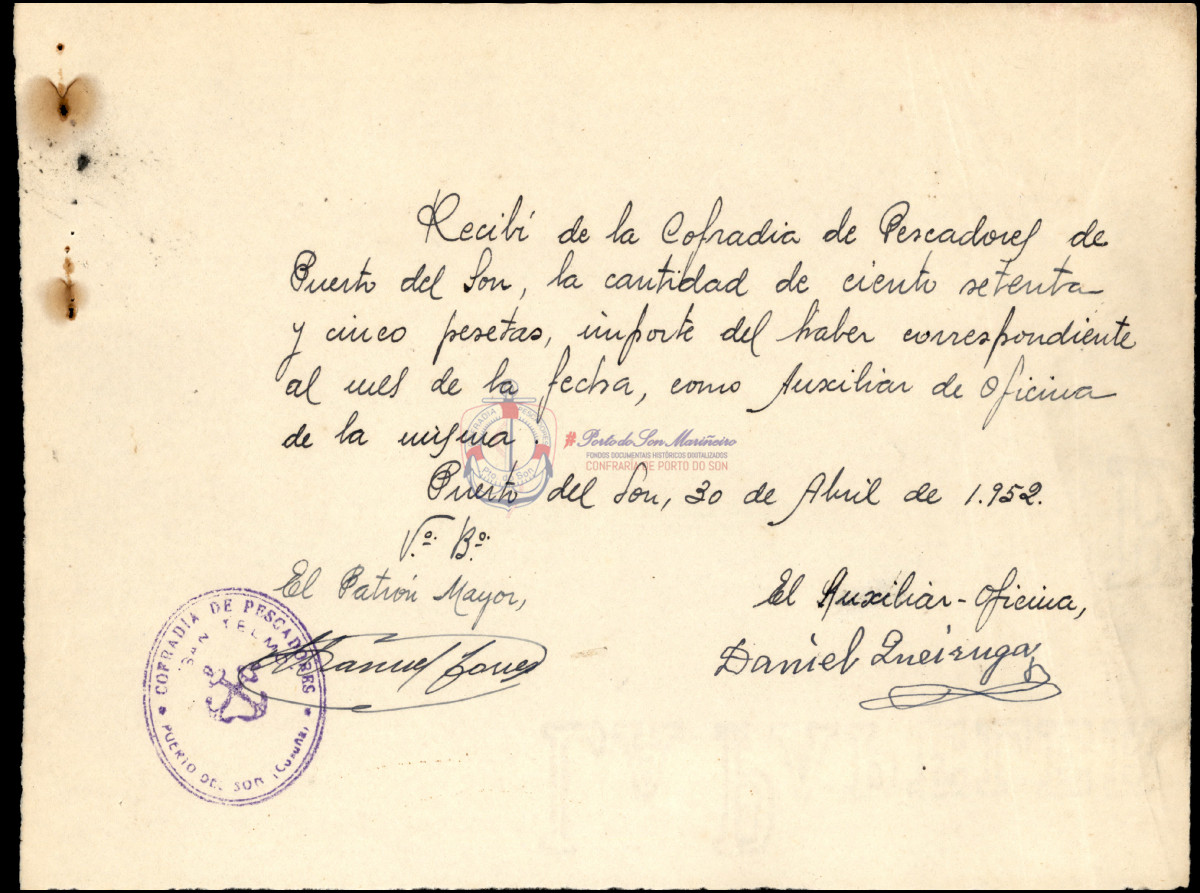 Recibí de la Cofradia de Pescadores de
Puerto del Son, la cantidad de ciento setenta
y cinco pesetas, importe del haber correspondiente
al mes de la fecha, como Auxiliar de Oficina
de la misma.
#PortodoSon Mariñeiro
FONDOS DOCUMENTAIS HISTÓRICOS DIXITALIZADOS
CONFRARÍA DE PORTO DO SON
Puerto del Son, 30 de Abril de 1.952.
V.º B.º
El Patrón Mayor,
El Auxiliar-Oficina,
Daniel Queiruga
COFRADIA DE PESCADORES
SAN TELMO
PUERTO DEL SON (Coruña)